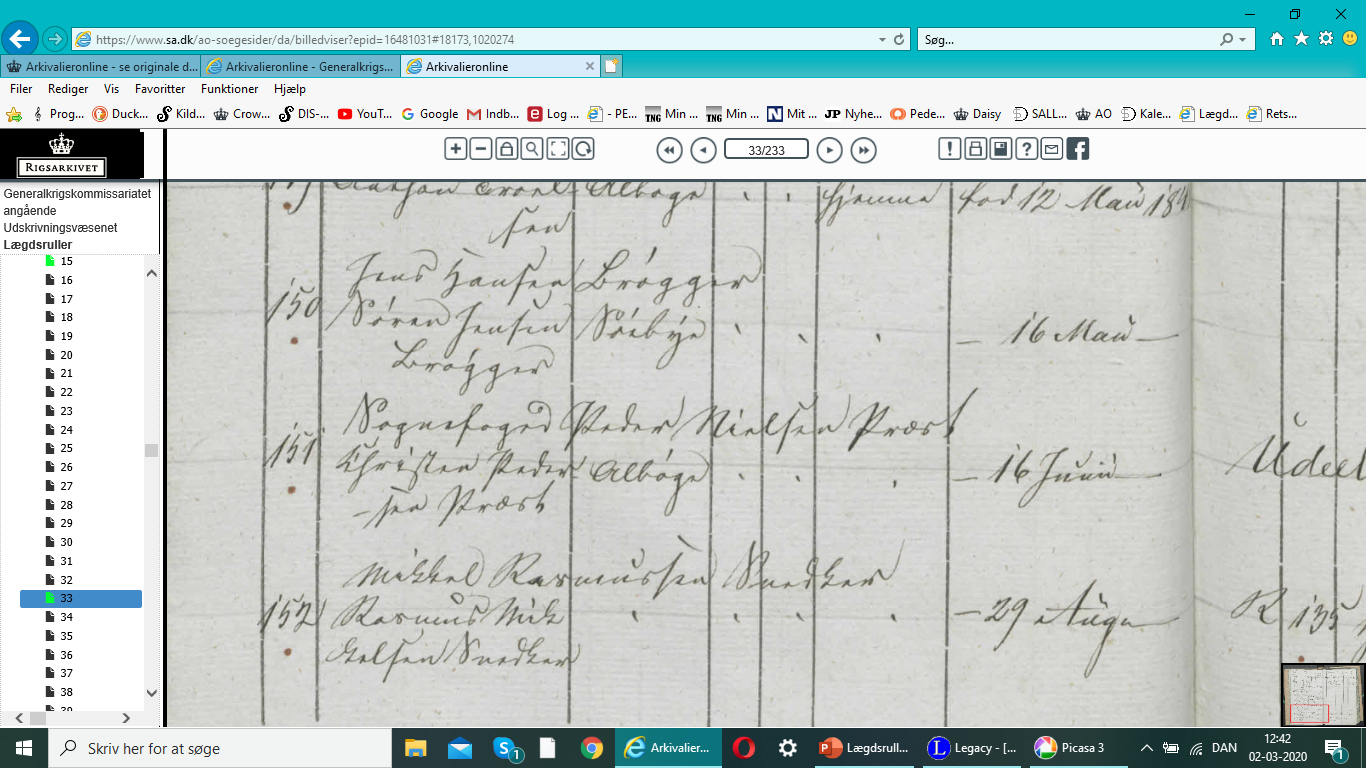 https://www.sa.dk/ao-soegesider/da/billedviser?epid=16481031#18173,1020274
Søg...
Arkivalieronline - se originale d...
Arkivalieronline - Generalkrigs...
Arkivalieronline
Filer Rediger Vis Favoritter Funktioner Hjælp
Prog... Duck... Kild... Crow... DIS-... YouT... Google Indb... Log ... - PE... Min ... Min ... Mit ... Nyhe... Pede... Daisy SALL... AO Kale... Lægd... Rets...
RIGSARKIVET
33/233
Generalkrigskommissariatet
angående
Udskrivningsvæsenet
Lægdsruller
15
16
17
18
19
20
21
22
23
24
25
26
27
28
29
30
31
32
33
34
35
36
37
38
39
Albøge hjemme fød 12 Maii
sen
Jens Hansen Brøgger
150 Søren Jensen Søebye — 16 Maii —
Brøgger
Sognefoged Peder Nielsen Præst
151 Christen Peder Albøge — 16 Junii — Udeel
-sen Præst
Mikkel Rasmussen Snedker
152 Rasmus Mik — 29 Augu R 135
kelsen Snedker
Skriv her for at søge
1
Arkivalier...
Lægdsrull...
Legacy - [...
Picasa 3
DAN
12:42
02-03-2020
1